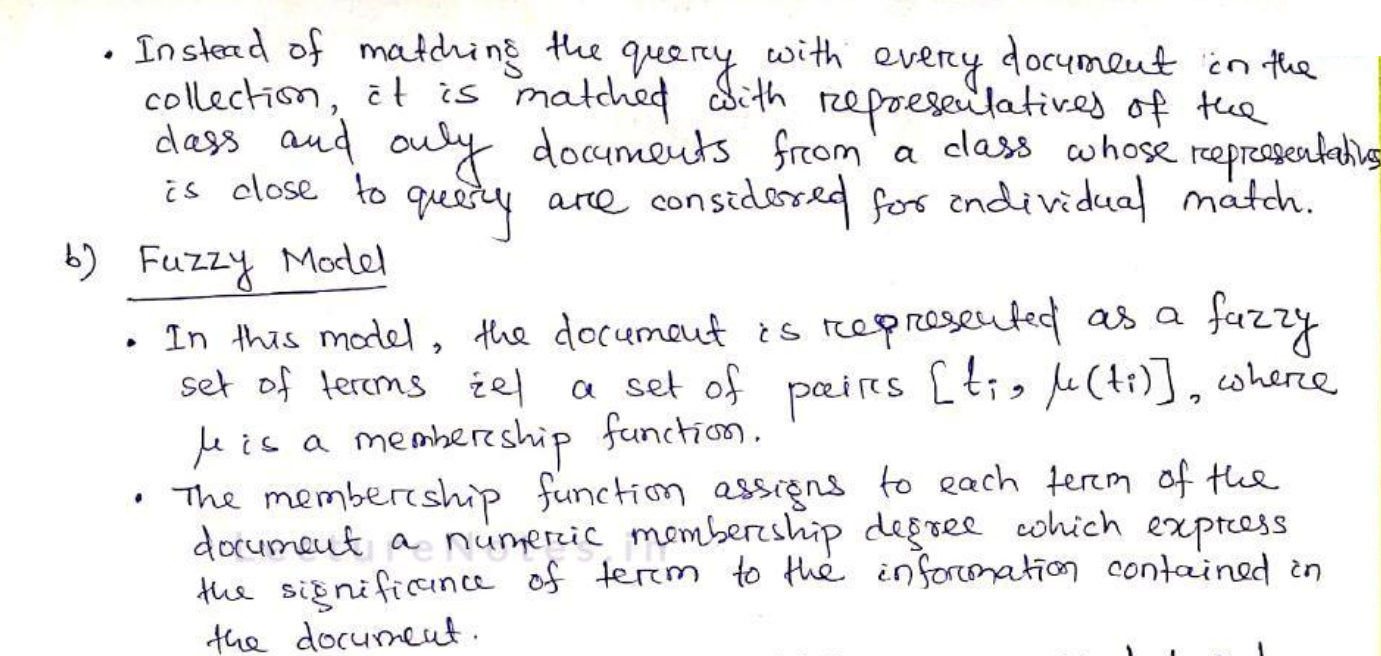 • Instead of matching the query with every document in the
collection, it is matched with representatives of the
class and only documents from a class whose representative
is close to query are considered for individual match.
b) Fuzzy Model
• In this model, the document is represented as a fuzzy
set of terms ie a set of pairs [ti, μ(ti)], where
μ is a membership function.
• The membership function assigns to each term of the
document a numeric membership degree which express
the significance of term to the information contained in
the document.
LectureNotes.in